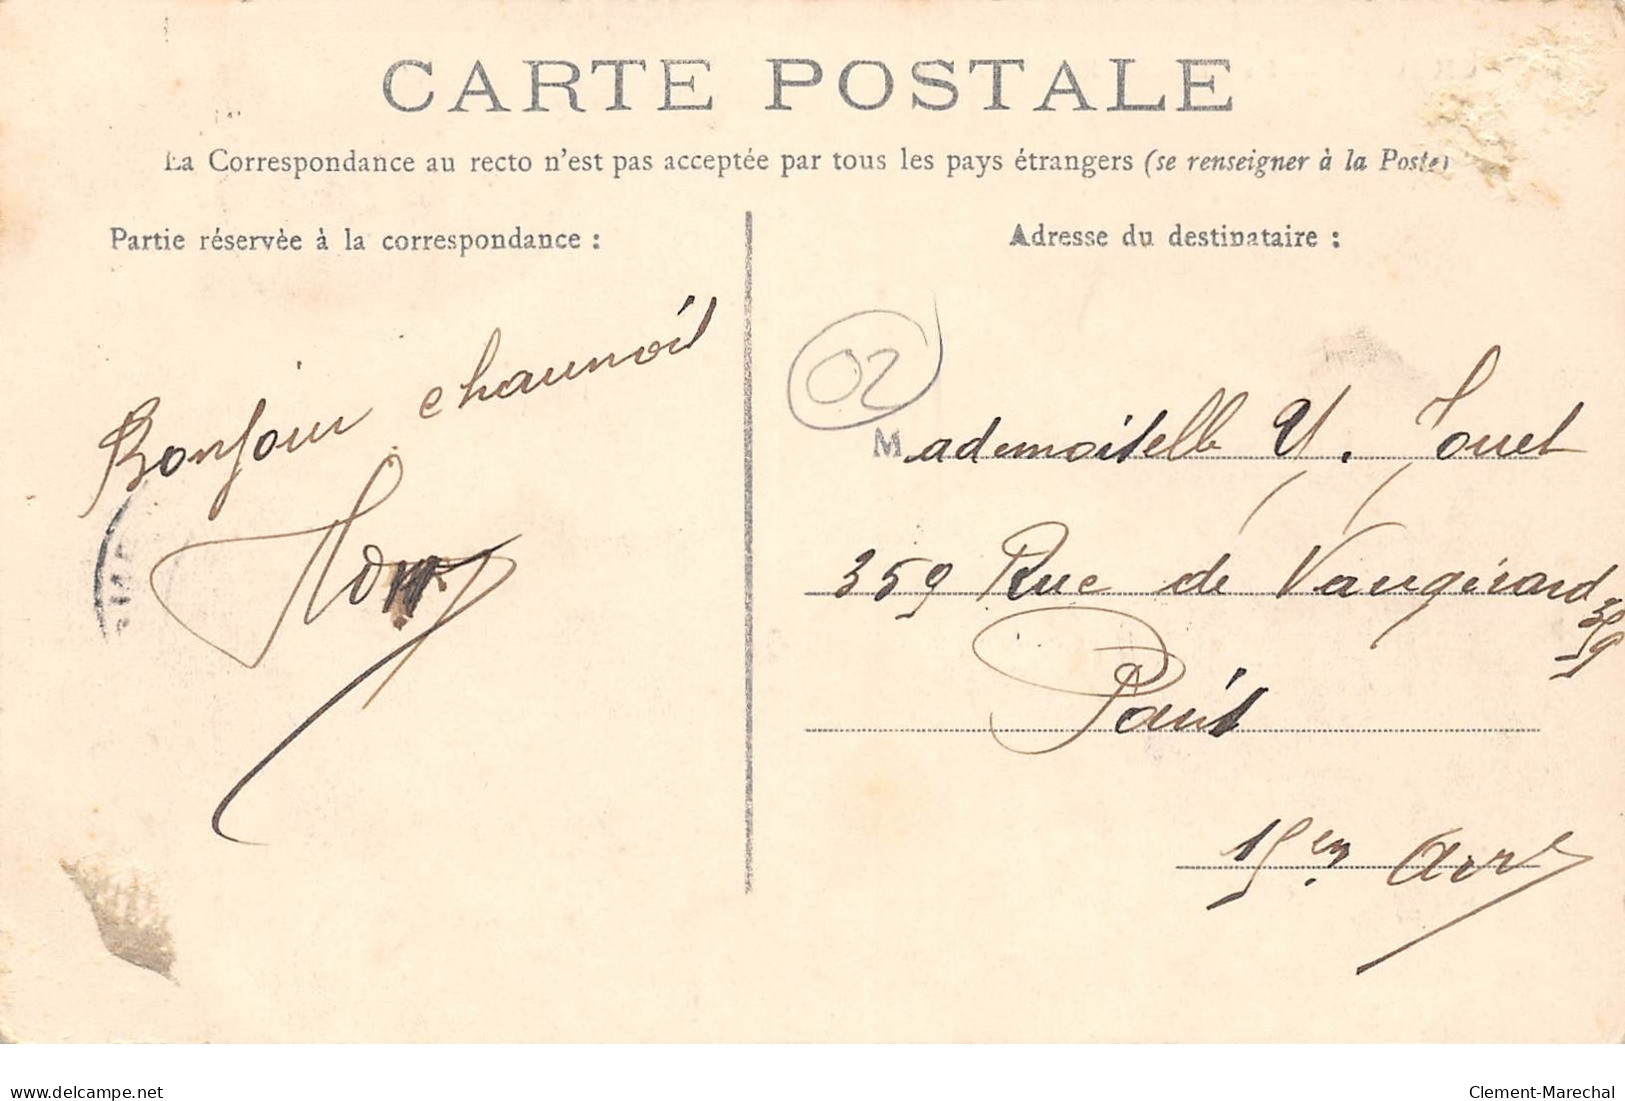 CARTE POSTALE
La Correspondance au recto n'est pas acceptée par tous les pays étrangers (se renseigner à la Poste)
Partie réservée à la correspondance :
Bonjour chaunois
Adresse du destinataire :
02
Mademoiselle Y. Jouet
359 Rue de Vaugirard
359
Paris
15em Arr
www.delcampe.net
Clement-Marechal